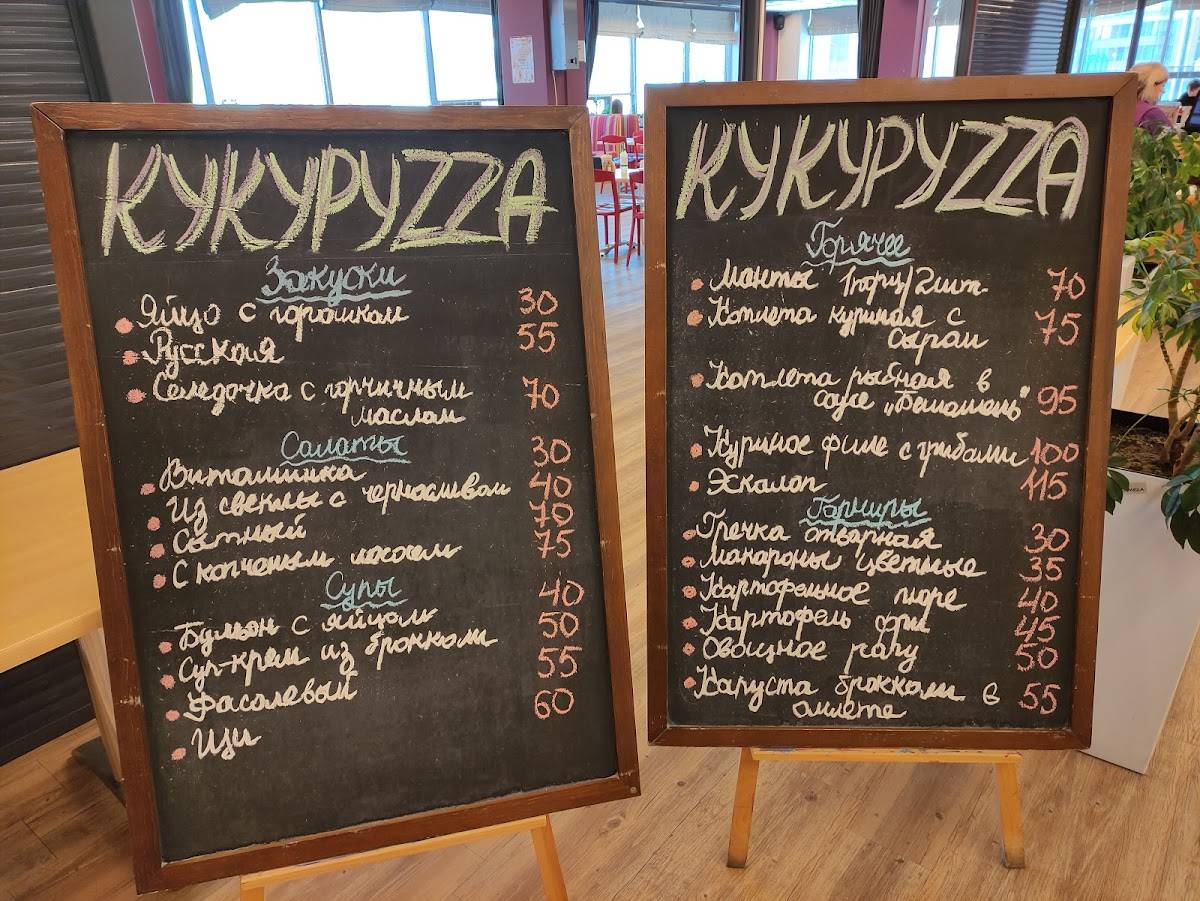 КУКУРУZZA
Закуски
Яйцо с горошком 30
Русская 55
Селедочка с горчичным 70
маслом
Салаты
Витаминка 30
Из свеклы с черносливом 40
Сытный 70
С копченым лососем 75
Супы
Бульон с яйцом 40
Суп-крем из брокколи 50
Фасолевый 55
Щи 60
КУКУРУZZA
Горячее
Манты 1порц/2шт. 70
Котлета куриная с 75
сыром
Котлета рыбная в
соусе „Бешамель" 95
Куриное филе с грибами 100
Эскалоп 115
Гарниры
Гречка отварная 30
Макароны цветные 35
Картофельное пюре 40
Картофель фри 45
Овощное рагу 50
Капуста брокколи в 55
омлете